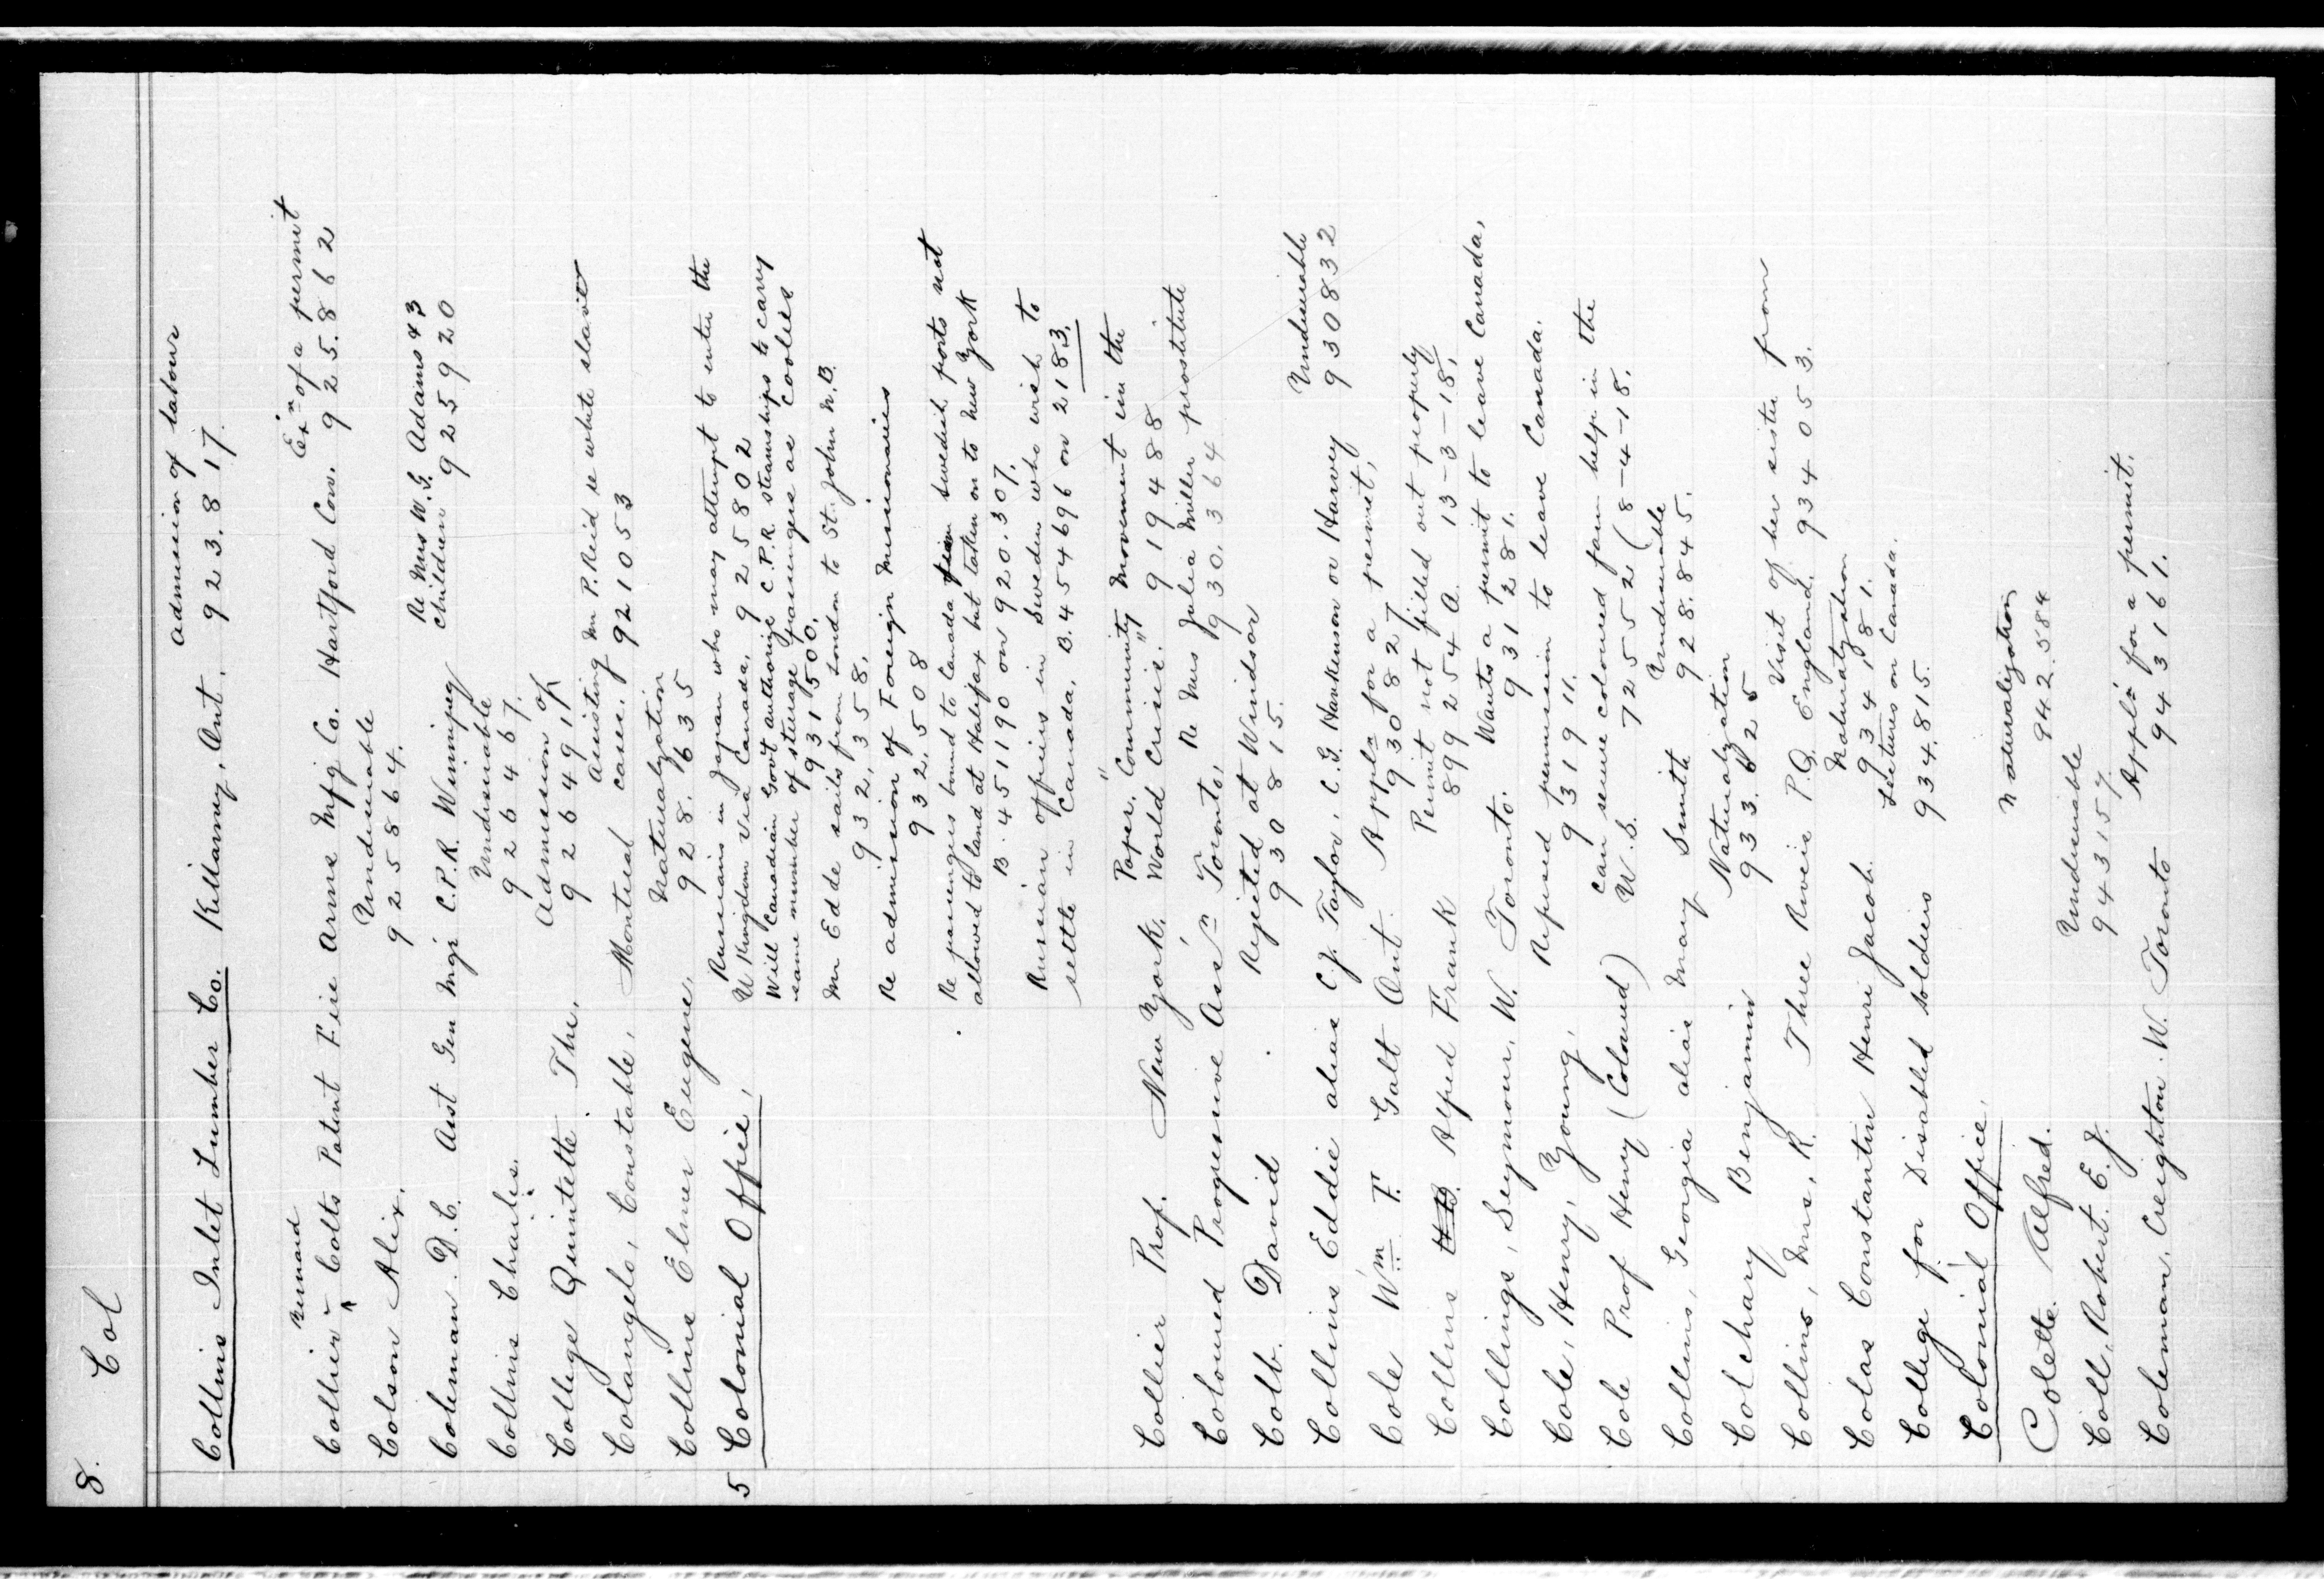 8. Col
Admission of labour
Collins Inlet Lumber Co. Killarney, Ont. 923.817.
Bernard Exn of a permit
Collier - Colts Patent Fire Arms Mfg Co. Hartford Con. 925.862
Undesirable
Colson Alix. 925864.
Re Mrs W.G. Adams & 3
Coleman D.C. Asst Gen Mgr C.P.R. Winnipeg children 925920
Undesirable
Collins Charles. 926467.
Admission of
College Quintette The, 926491
Assisting Mr P. Reid re white slave
Colangelo, Constable, Montreal cases. 921053
Naturalization
Collins Elmer Eugene, 928.635
Russians in Japan who may attempt to enter the
5 Colonial Office, U Kingdom via Canada, 925802
Will Canadian Gov't authorize C.P.R. steamships to carry
same number of steerage passengers as coolies
931500.
Mr Edde sails from London to St. John N.B.
932,358.
Re admission of Foreign Missionaries
932,508
Re passengers bound to Canada from Swedish ports not
allowed to land at Halifax but taken on to New York
B. 451190 on 920.307.
Russian officers in Sweden who wish to
settle in Canada. B. 454696 on 2183.
Paper. "Community Movement in the
Collier Prof. New York, World Crisis." 919488
Re Mrs Julia Miller prostitute
Coloured Progressive Assn Toronto, 930.364
Rejected at Windsor
Colb. David 930815.
Undesirable
Collins Eddie alias C.J. Taylor, C.G. Harkenson or Harvey 930832
Appln for a permit,
Cole Wm F. Galt Ont. 930827
Permit not filled out properly
Collins Alfred Frank 899254 A. 13-3-18,
Wants a permit to leave Canada,
Collings, Seymour, W. Toronto. 931281.
Refused permission to leave Canada.
Cole, Henry, Young, 931911.
Can secure coloured farm help in the
Cole Prof Henry (Coloured) U.S. 725552 (8-4-18.
Undesirable
Collins, Georgia alias Mary Smith 928.845.
Naturalization
Colchary Benjamin 933.625
Visit of her sister from
Collins, Mrs. R. Three Rivers P.Q. England. 934053.
Naturalization
Colas Constantin Henri Jacob. 934181.
Lectures on Canada.
College for Disabled Soldiers 934,815.
Colonial Office,
Naturalization
Colette. Alfred. 942.584
Undesirable
Coll, Robert. E. J. 943157.
Appln for a permit.
Coleman, Creighton. W. Toronto 943161.